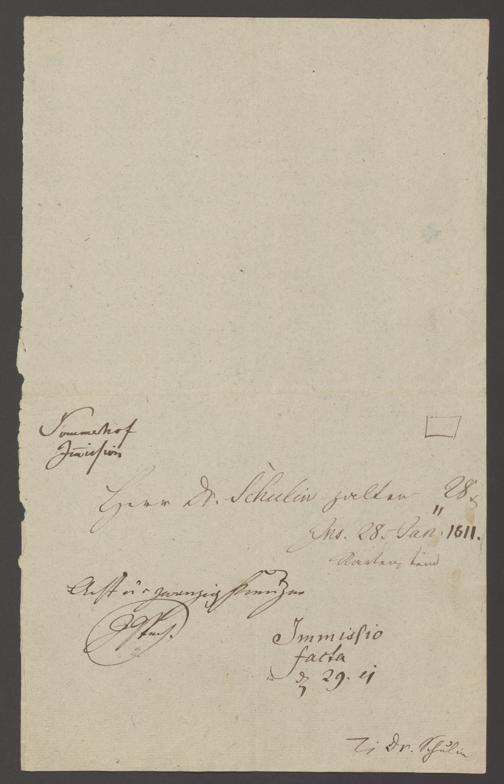 Sommerhof
Immission
Herr Dr. Schulin zalten 28 x
Ins. 28. Jan. 1811.
Acht u. zwanzig Kreuzer
Immissio
facta
d. 29. ej
Dr. Schulin